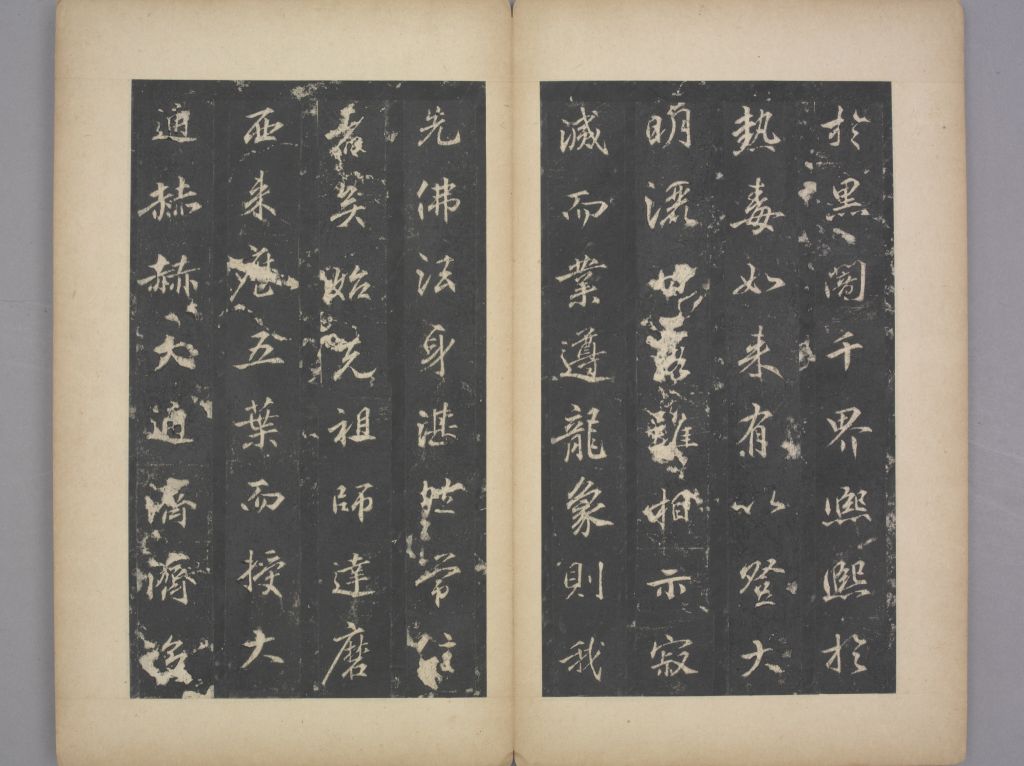 於黑闇千界熙熙於
熱毒如来有以登大
明濯甘露雖相示寂
滅而業遵龍象則我
先佛法身湛然常住
者矣始先祖師達磨
西来歷五葉而授大
通赫赫大通濟濟